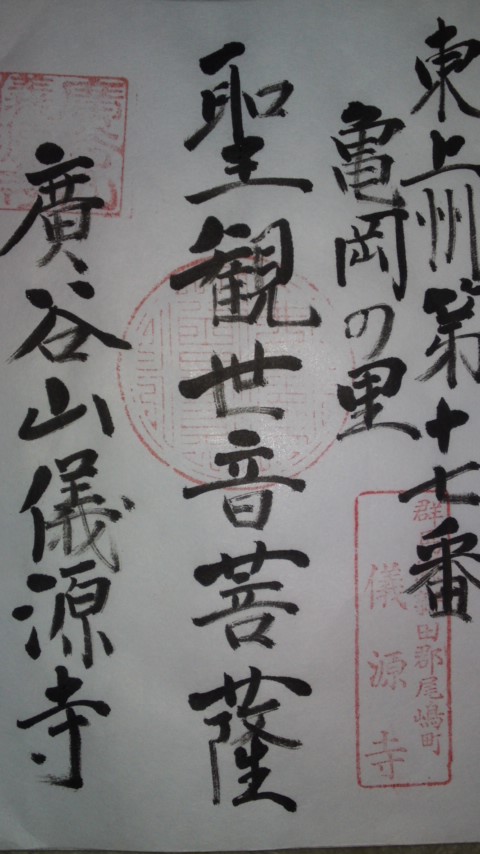 東上州第十七番
亀岡の里
聖観世音菩薩
廣谷山儀源寺
群 田郡尾嶋町
儀源寺